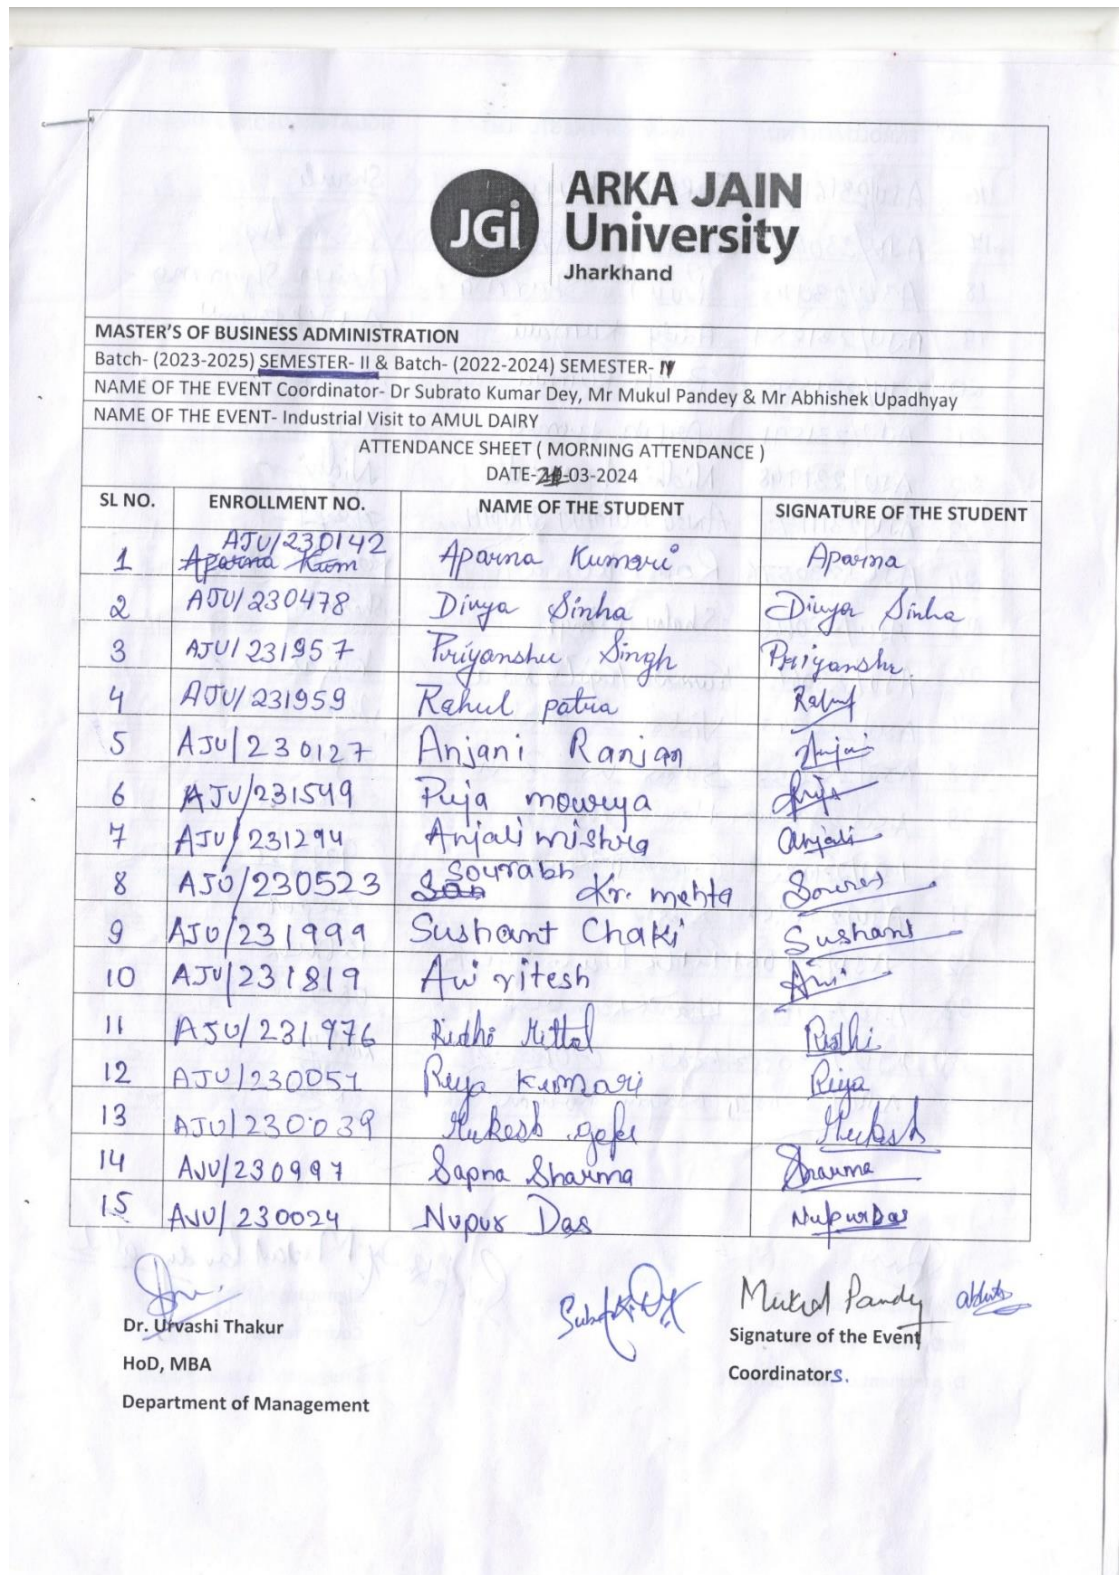 JGi
ARKA JAIN
University
Jharkhand
MASTER'S OF BUSINESS ADMINISTRATION
Batch- (2023-2025) SEMESTER- II & Batch- (2022-2024) SEMESTER- IV
NAME OF THE EVENT Coordinator- Dr Subrato Kumar Dey, Mr Mukul Pandey & Mr Abhishek Upadhyay
NAME OF THE EVENT- Industrial Visit to AMUL DAIRY
ATTENDANCE SHEET ( MORNING ATTENDANCE )
DATE- -03-2024
SL NO. ENROLLMENT NO. NAME OF THE STUDENT SIGNATURE OF THE STUDENT
1 AJU/230142 Aparna Kumari Aparna
Aparna Kum
2 AJU/230478 Divya Sinha Divya Sinha
3 AJU/231957 Priyanshu Singh Priyanshu
4 AJU/231959 Rahul patra Rahul
5 AJU/230127 Anjani Ranjan Anjani
6 AJU/231549 Puja mourya Puja
7 AJU/231294 Anjali mishra anjali
8 AJU/230523 Sourabh Kr. mehta
9 AJU/231999 Sushant Chaki Sushant
10 AJU/231819 Avi ritesh Avi
11 AJU/231976 Ridhi Mittal Ridhi
12 AJU/230051 Riya Kumari Riya
13 AJU/230039 Mukesh gope Mukesh
14 AJU/230997 Sapna Sharma Sharma
15 AJU/230024 Nupur Das Nupur Das
Mukul Pandey
Dr. Urvashi Thakur
Signature of the Event
HoD, MBA
Coordinators.
Department of Management